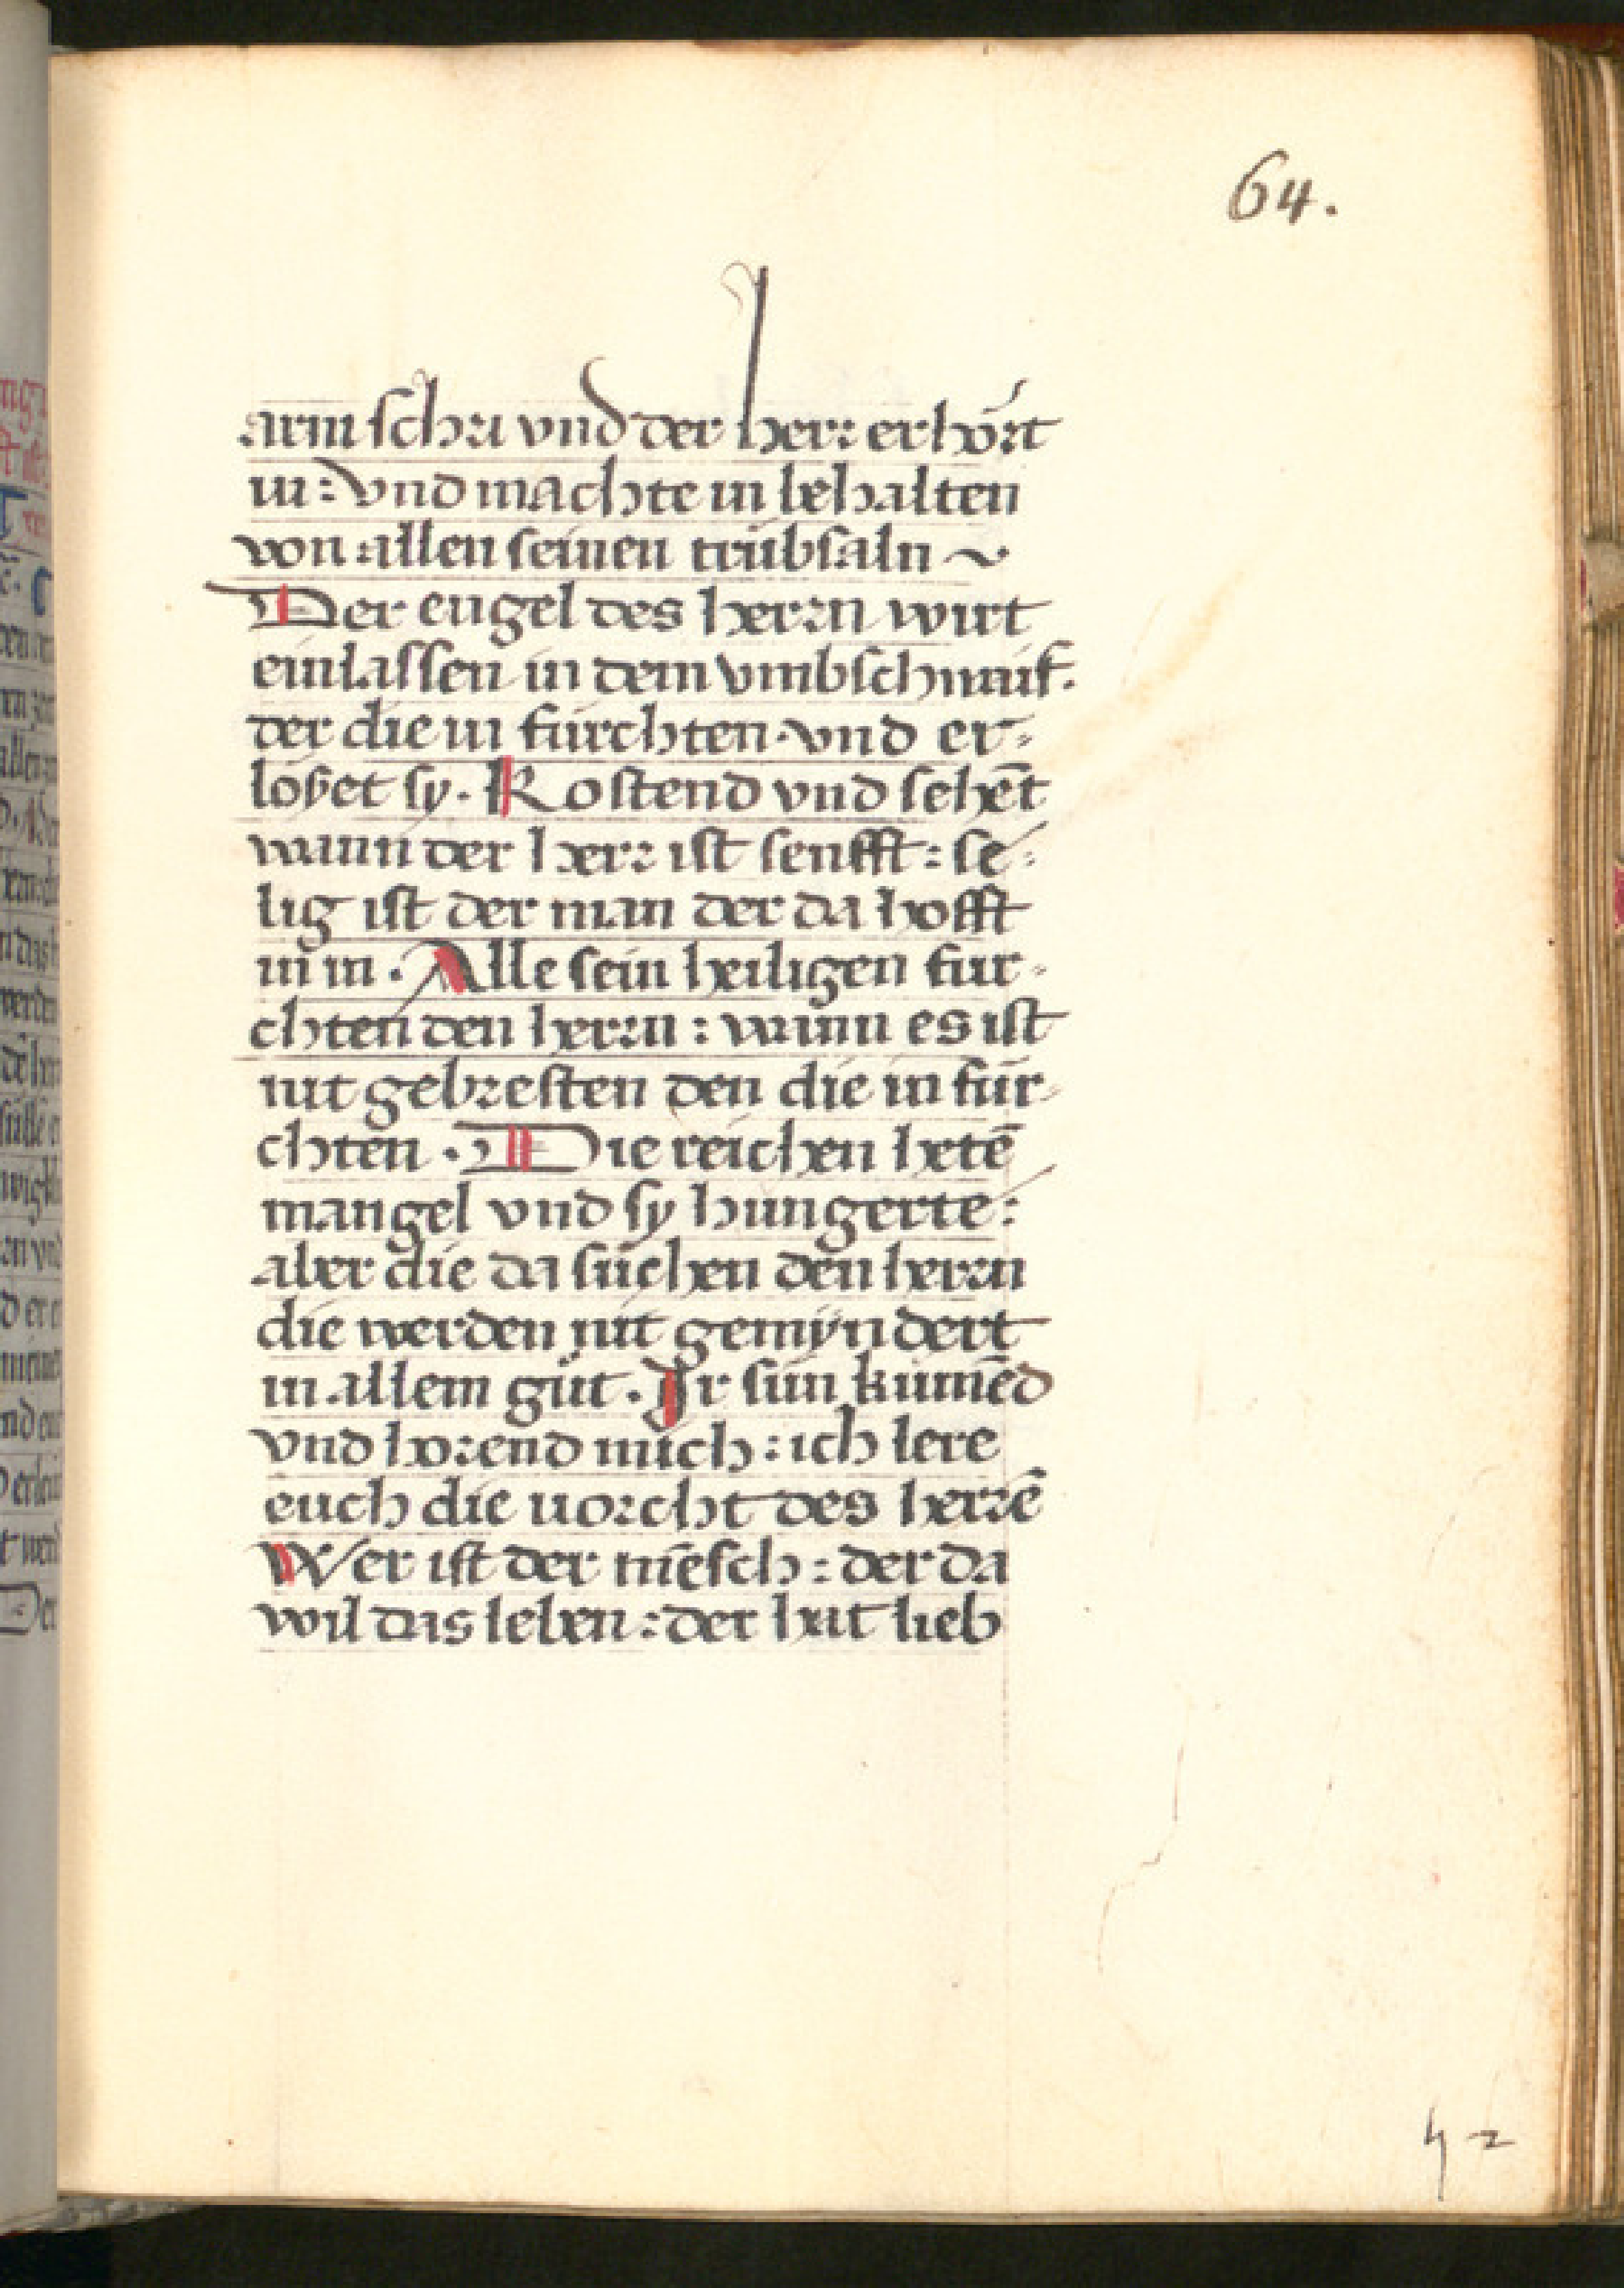 64.
arm schri vnd der herr erhört
in: vnd machte in behalten
von allen seinen trübsaln ~
Der engel des herrn wirt
einlassen in dem vmbschwaif.
der die in fürchten. vnd er-
löset sy. Kostend vnd sehēt
wann der herr ist senfft: se-
lig ist der man der da hofft
in in. Alle sein heiligen für-
chten den herrn: wann es ist
nit gebresten den die in für-
chten. Die reichen hetē
mangel vnd sy hungertē:
aber die da süchen den herrn
die werden nit gemyndert
in allem güt. Ir sün kumēd
vnd horend mich: ich lere
euch die vorcht des herrē
Wer ist der mēsch: der da
wil das leben: der hat lieb
h 2